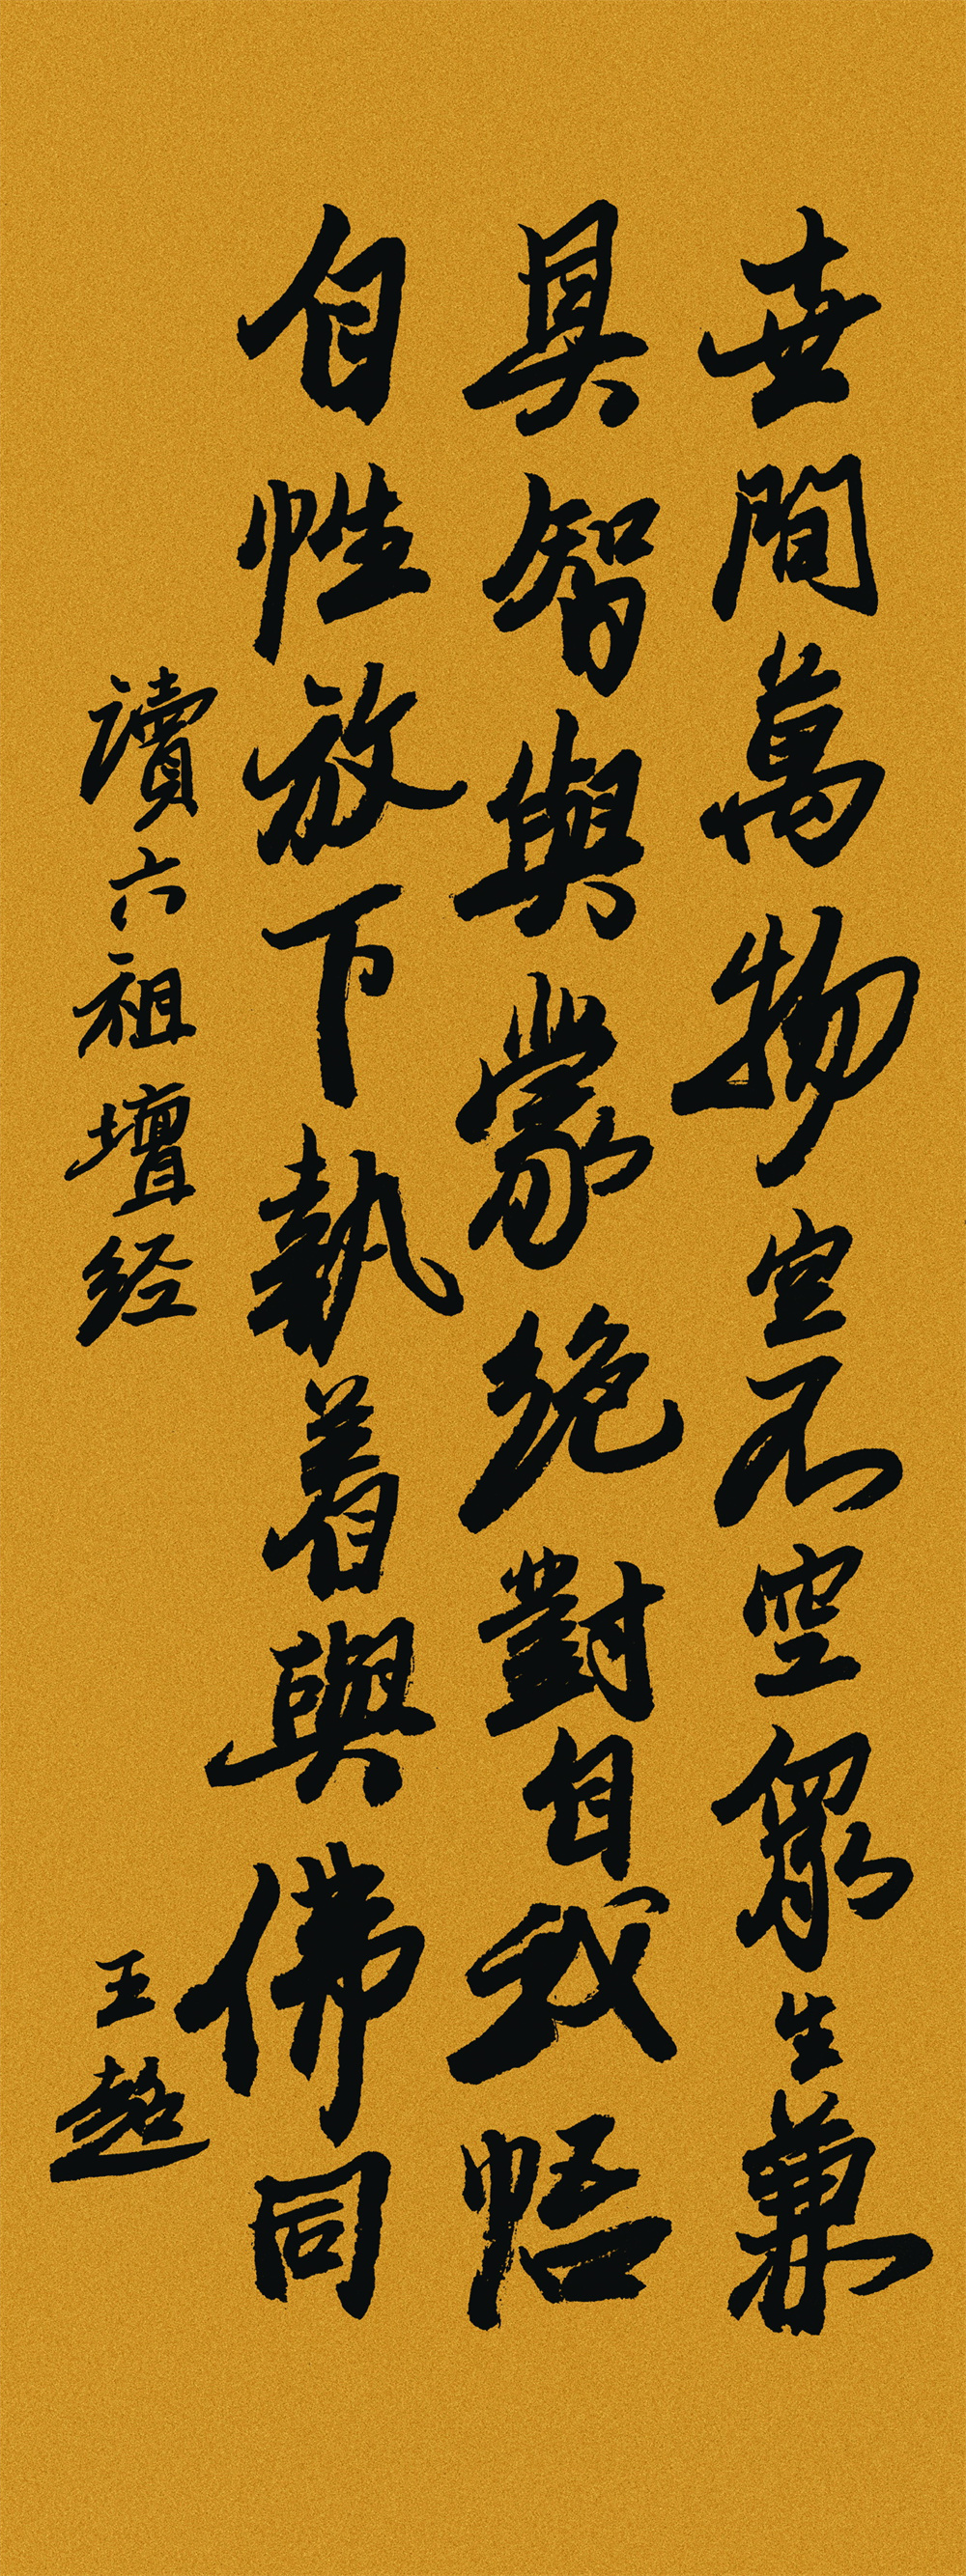 世間萬物空不空眾生兼
具智與蒙絶對自我悟
自性放下執着與佛同
讀六祖壇经
王超